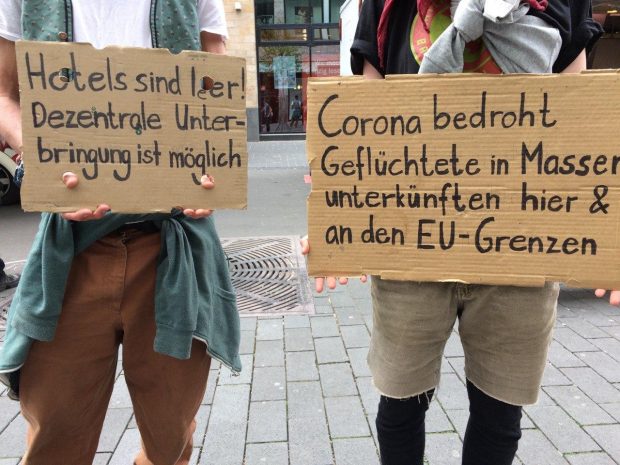 Hotels sind leer!
Dezentrale Unter-
bringung ist möglich
Corona bedroht
Geflüchtete in Massen
unterkünften hier &
an den EU-Grenzen